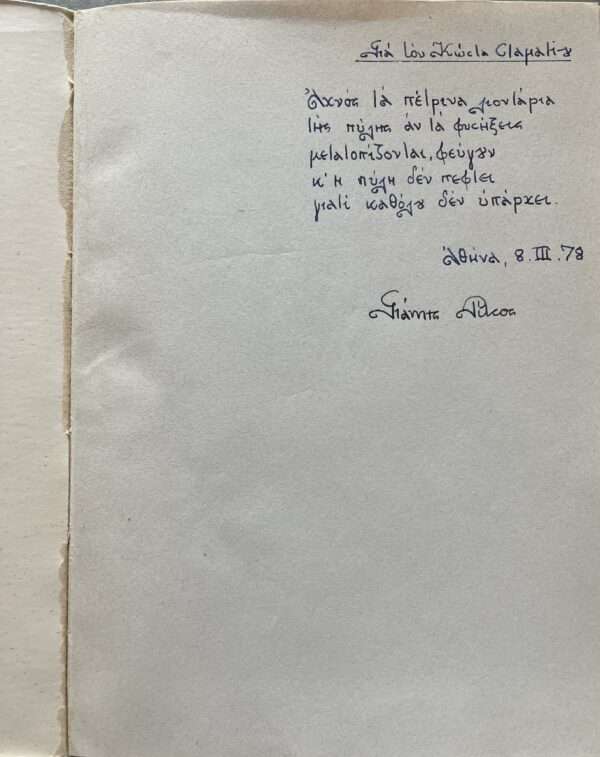 Γιὰ τὸν Κώστα Σταματίου
Ἀχνὸς τὰ πέτρινα λιοντάρια
τῆς πύλης ἂν τὰ φυσήξεις
μετατοπίζονται, φεύγουν
κ' ἡ πύλη δὲν πέφτει
γιατὶ καθόλου δὲν ὑπάρχει.
Ἀθήνα, 8.III.78
Γιάννης Ρίτσος